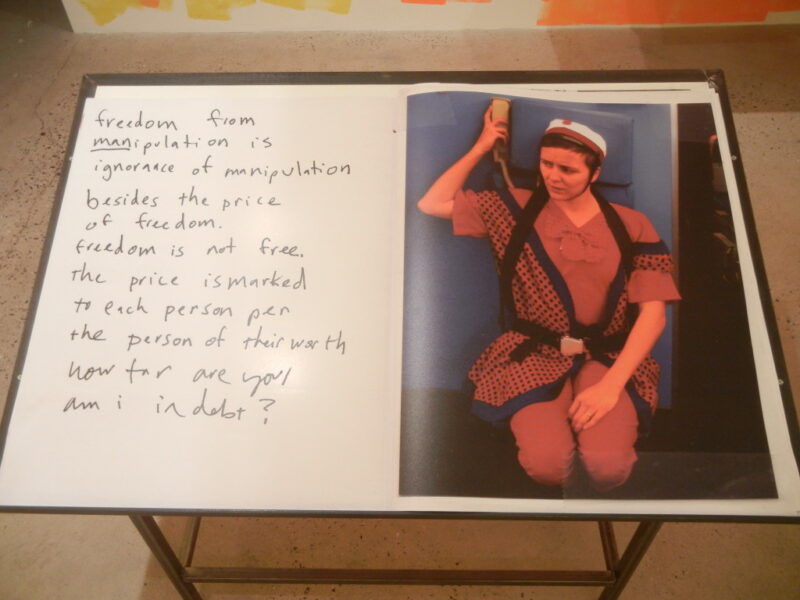 freedom from
manipulation is
ignorance of manipulation
besides the price
of freedom.
freedom is not free.
the price is marked
to each person per
the person of their worth
how far are you/
am i in debt?